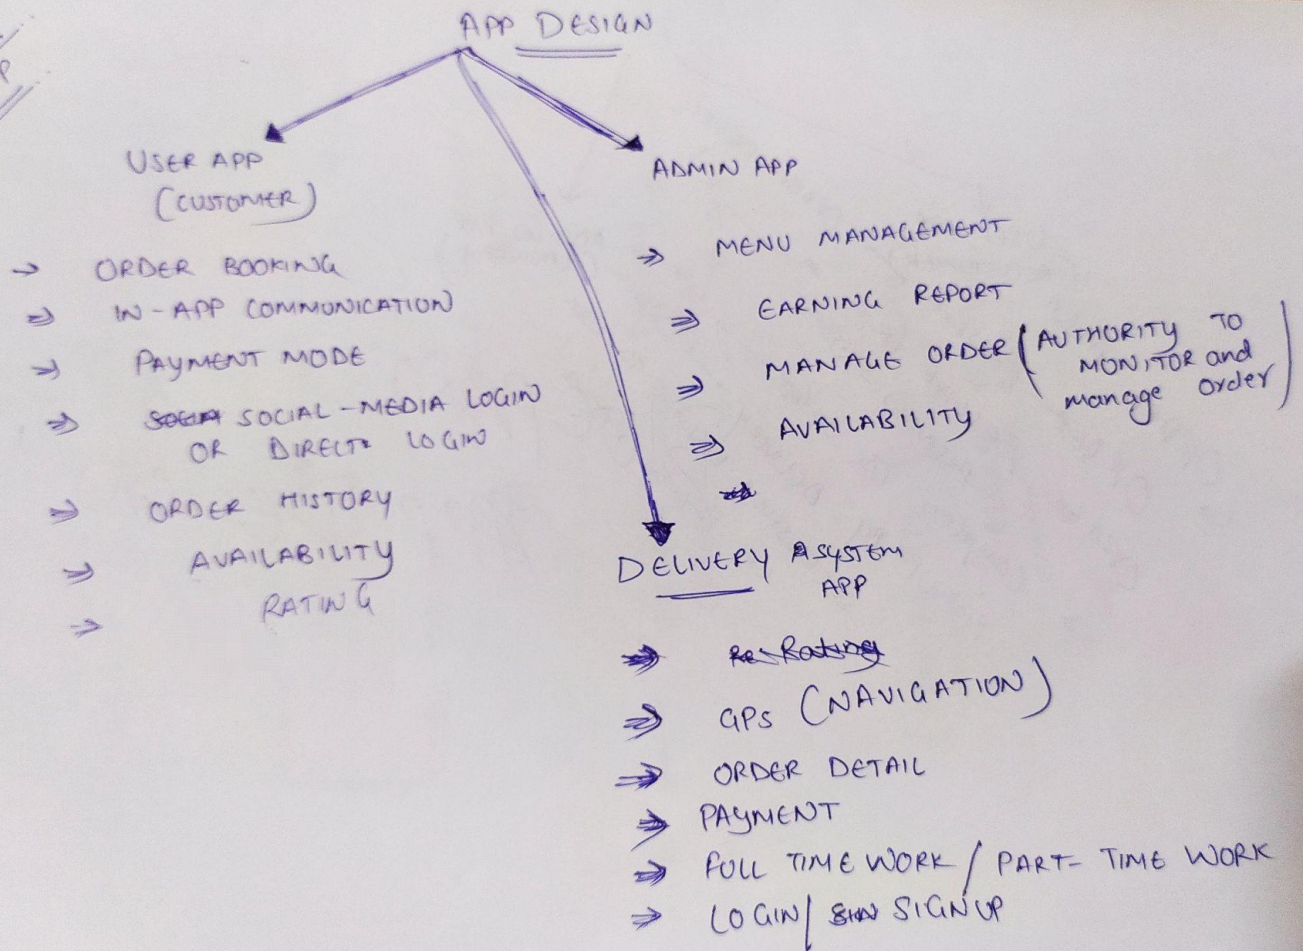 P
APP DESIGN
USER APP
(CUSTOMER)
→ ORDER BOOKING
⇒ IN-APP COMMUNICATION
⇒ PAYMENT MODE
⇒ SOCIAL-MEDIA LOGIN
OR DIRECT LOGIN
⇒ ORDER HISTORY
⇒ AVAILABILITY
⇒ RATING
ADMIN APP
⇒ MENU MANAGEMENT
⇒ EARNING REPORT
⇒ MANAGE ORDER (AUTHORITY TO
MONITOR and
manage order)
⇒ AVAILABILITY
DELIVERY SYSTEM
APP
⇒ Rating
⇒ GPS (NAVIGATION)
⇒ ORDER DETAIL
⇒ PAYMENT
⇒ FULL TIME WORK / PART-TIME WORK
⇒ LOGIN / SIGNUP